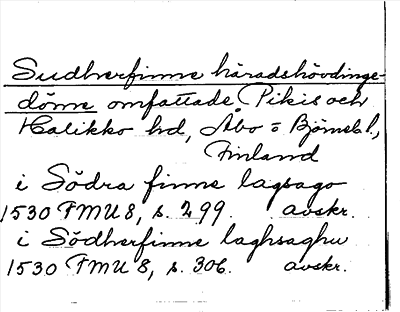 Sudherfinne häradshövdinge-
döme omfattade Pikis och
Halikko hd, Åbo o Björneb l.,
Finland
i Södra finne lagsago
1530 FMU 8, s. 299. avskr.
i Södherfinne laghsaghu
1530 FMU 8, s. 306. avskr.